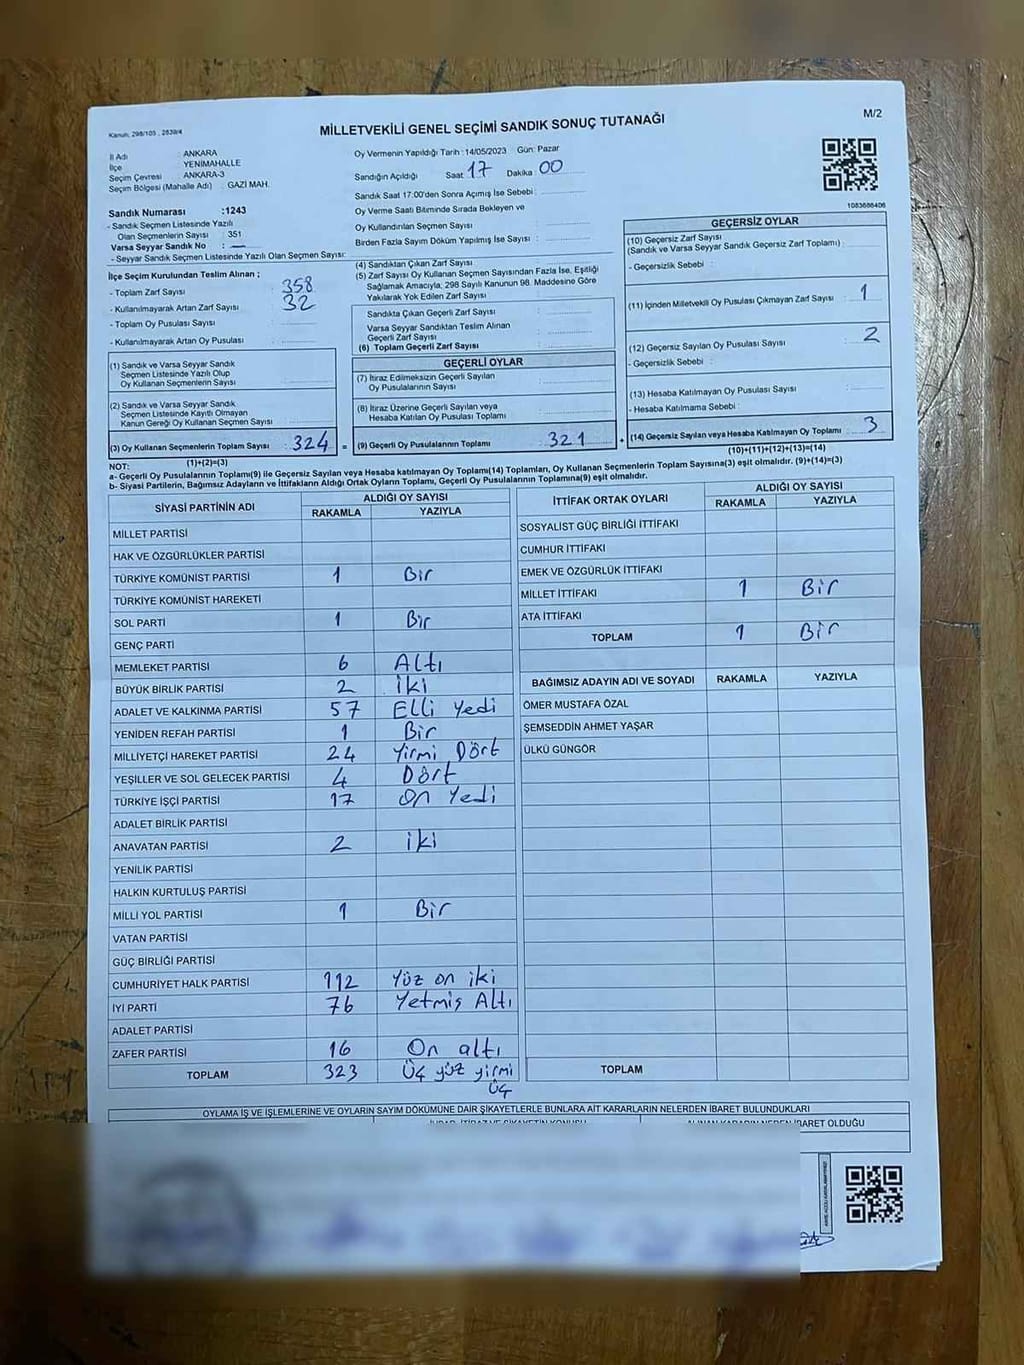 Kanun: 298/105 , 2839/4
MİLLETVEKİLİ GENEL SEÇİMİ SANDIK SONUÇ TUTANAĞI
M/2
İl Adı : ANKARA
İlçe : YENİMAHALLE
Seçim Çevresi : ANKARA-3
Seçim Bölgesi (Mahalle Adı) : GAZİ MAH.
Oy Vermenin Yapıldığı Tarih : 14/05/2023 Gün: Pazar
Sandığın Açıldığı Saat 17 Dakika 00
Sandık Saat 17.00'den Sonra Açılmış İse Sebebi :
Oy Verme Saati Bitiminde Sırada Bekleyen ve
Oy Kullandırılan Seçmen Sayısı :
Birden Fazla Sayım Dökümü Yapılmış İse Sayısı :
1083686406
Sandık Numarası : 1243
- Sandık Seçmen Listesinde Yazılı
Olan Seçmenlerin Sayısı : 351
Varsa Seyyar Sandık No :
- Seyyar Sandık Seçmen Listesinde Yazılı Olan Seçmen Sayısı:
İlçe Seçim Kurulundan Teslim Alınan ;
- Toplam Zarf Sayısı : 358
- Kullanılmayarak Artan Zarf Sayısı : 32
- Toplam Oy Pusulası Sayısı :
- Kullanılmayarak Artan Oy Pusulası :
(1) Sandık ve Varsa Seyyar Sandık
Seçmen Listesinde Yazılı Olup
Oy Kullanan Seçmenlerin Sayısı :
(2) Sandık ve Varsa Seyyar Sandık
Seçmen Listesinde Kayıtlı Olmayan
Kanun Gereği Oy Kullanan Seçmen Sayısı :
(3) Oy Kullanan Seçmenlerin Toplam Sayısı : 324 =
(1)+(2)=(3)
(4) Sandıktan Çıkan Zarf Sayısı :
(5) Zarf Sayısı Oy Kullanan Seçmen Sayısından Fazla İse, Eşitliği
Sağlamak Amacıyla; 298 Sayılı Kanunun 98. Maddesine Göre
Yakılarak Yok Edilen Zarf Sayısı :
Sandıkta Çıkan Geçerli Zarf Sayısı :
Varsa Seyyar Sandıktan Teslim Alınan
Geçerli Zarf Sayısı :
(6) Toplam Geçerli Zarf Sayısı :
GEÇERLİ OYLAR
(7) İtiraz Edilmeksizin Geçerli Sayılan
Oy Pusulalarının Sayısı :
(8) İtiraz Üzerine Geçerli Sayılan veya
Hesaba Katılan Oy Pusulası Toplamı :
(9) Geçerli Oy Pusulalarının Toplamı : 321 +
GEÇERSİZ OYLAR
(10) Geçersiz Zarf Sayısı
(Sandık ve Varsa Seyyar Sandık Geçersiz Zarf Toplamı) :
- Geçersizlik Sebebi :
(11) İçinden Milletvekili Oy Pusulası Çıkmayan Zarf Sayısı : 1
(12) Geçersiz Sayılan Oy Pusulası Sayısı : 2
- Geçersizlik Sebebi :
(13) Hesaba Katılmayan Oy Pusulası Sayısı :
- Hesaba Katılmama Sebebi :
(14) Geçersiz Sayılan veya Hesaba Katılmayan Oy Toplamı : 3
(10)+(11)+(12)+(13)=(14)
NOT:
a- Geçerli Oy Pusulalarının Toplamı(9) ile Geçersiz Sayılan veya Hesaba katılmayan Oy Toplamı(14) Toplamları, Oy Kullanan Seçmenlerin Toplam Sayısına(3) eşit olmalıdır. (9)+(14)=(3)
b- Siyasi Partilerin, Bağımsız Adayların ve İttifakların Aldığı Ortak Oyların Toplamı, Geçerli Oy Pusulalarının Toplamına(9) eşit olmalıdır.
SİYASİ PARTİNİN ADI ALDIĞI OY SAYISI
RAKAMLA YAZIYLA
MİLLET PARTİSİ
HAK VE ÖZGÜRLÜKLER PARTİSİ
TÜRKİYE KOMÜNİST PARTİSİ 1 Bir
TÜRKİYE KOMÜNİST HAREKETİ
SOL PARTİ 1 Bir
GENÇ PARTİ
MEMLEKET PARTİSİ 6 Altı
BÜYÜK BİRLİK PARTİSİ 2 İki
ADALET VE KALKINMA PARTİSİ 57 Elli Yedi
YENİDEN REFAH PARTİSİ 1 Bir
MİLLİYETÇİ HAREKET PARTİSİ 24 Yirmi Dört
YEŞİLLER VE SOL GELECEK PARTİSİ 4 Dört
TÜRKİYE İŞÇİ PARTİSİ 17 On Yedi
ADALET BİRLİK PARTİSİ
ANAVATAN PARTİSİ 2 iki
YENİLİK PARTİSİ
HALKIN KURTULUŞ PARTİSİ
MİLLİ YOL PARTİSİ 1 Bir
VATAN PARTİSİ
GÜÇ BİRLİĞİ PARTİSİ
CUMHURİYET HALK PARTİSİ 112 Yüz on iki
İYİ PARTİ 76 Yetmiş Altı
ADALET PARTİSİ
ZAFER PARTİSİ 16 On altı
TOPLAM 323 Üç yüz yirmi
üç
İTTİFAK ORTAK OYLARI ALDIĞI OY SAYISI
RAKAMLA YAZIYLA
SOSYALİST GÜÇ BİRLİĞİ İTTİFAKI
CUMHUR İTTİFAKI
EMEK VE ÖZGÜRLÜK İTTİFAKI
MİLLET İTTİFAKI 1 Bir
ATA İTTİFAKI
TOPLAM 1 Bir
BAĞIMSIZ ADAYIN ADI VE SOYADI RAKAMLA YAZIYLA
ÖMER MUSTAFA ÖZAL
ŞEMSEDDİN AHMET YAŞAR
ÜLKÜ GÜNGÖR
TOPLAM
OYLAMA İŞ VE İŞLEMLERİNE VE OYLARIN SAYIM DÖKÜMÜNE DAİR ŞİKAYETLERLE BUNLARA AİT KARARLARIN NELERDEN İBARET BULUNDUKLARI
İBARET OLDUĞU